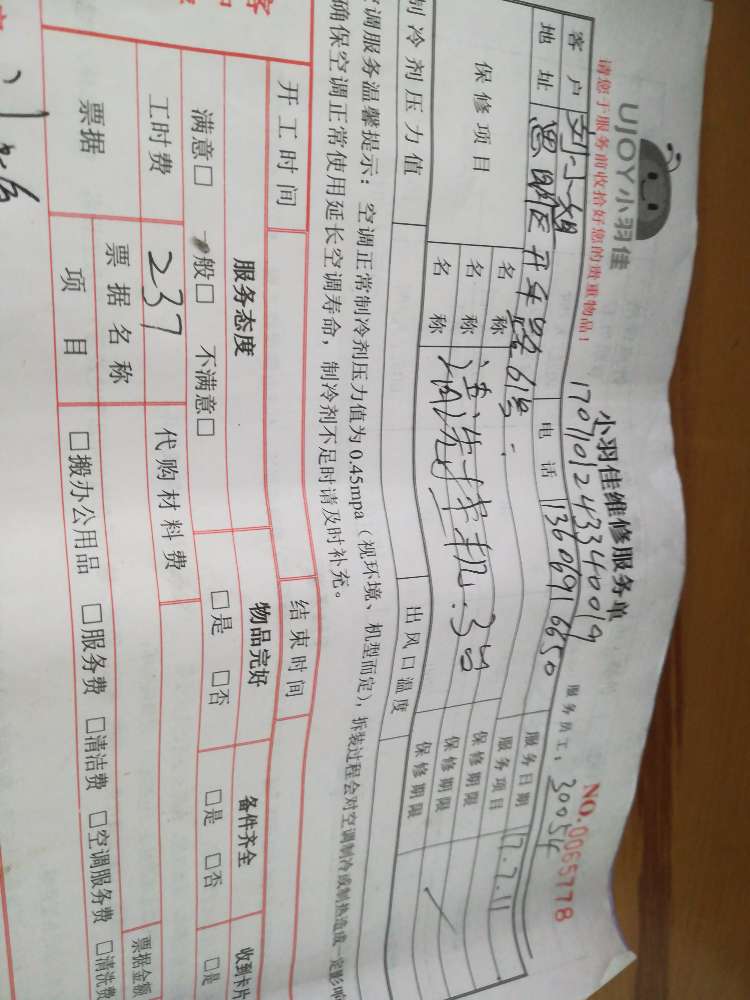 UJOY小羽佳
小羽佳维修服务单
NO.0065778
请您于服务前收拾好您的贵重物品!
1707101243340019
服务员工: 30054
客户 刘小姐 电话 13606916650 服务日期 17.7.11
地址 思明区开车路61号 服务项目
保修项目 名称 保修期限
名称 清洗挂机.3台 保修期限
名称 保修期限
制冷剂压力值 出风口温度
调服务温馨提示:空调正常制冷剂压力值为0.45mpa(视环境、机型而定),拆装过程会对空调制冷或制热造成一定影响
确保空调正常使用延长空调寿命,制冷剂不足时请及时补充。
开工时间 结束时间
服务态度 物品完好 备件齐全 收到卡片
满意□ 一般□ 不满意□ □是 □否 □是 □否 □是
工时费 237 代购材料费
票据 票据名称 票据金额
项目 □搬办公用品 □服务费 □清洁费 □空调服务费 □清洗费